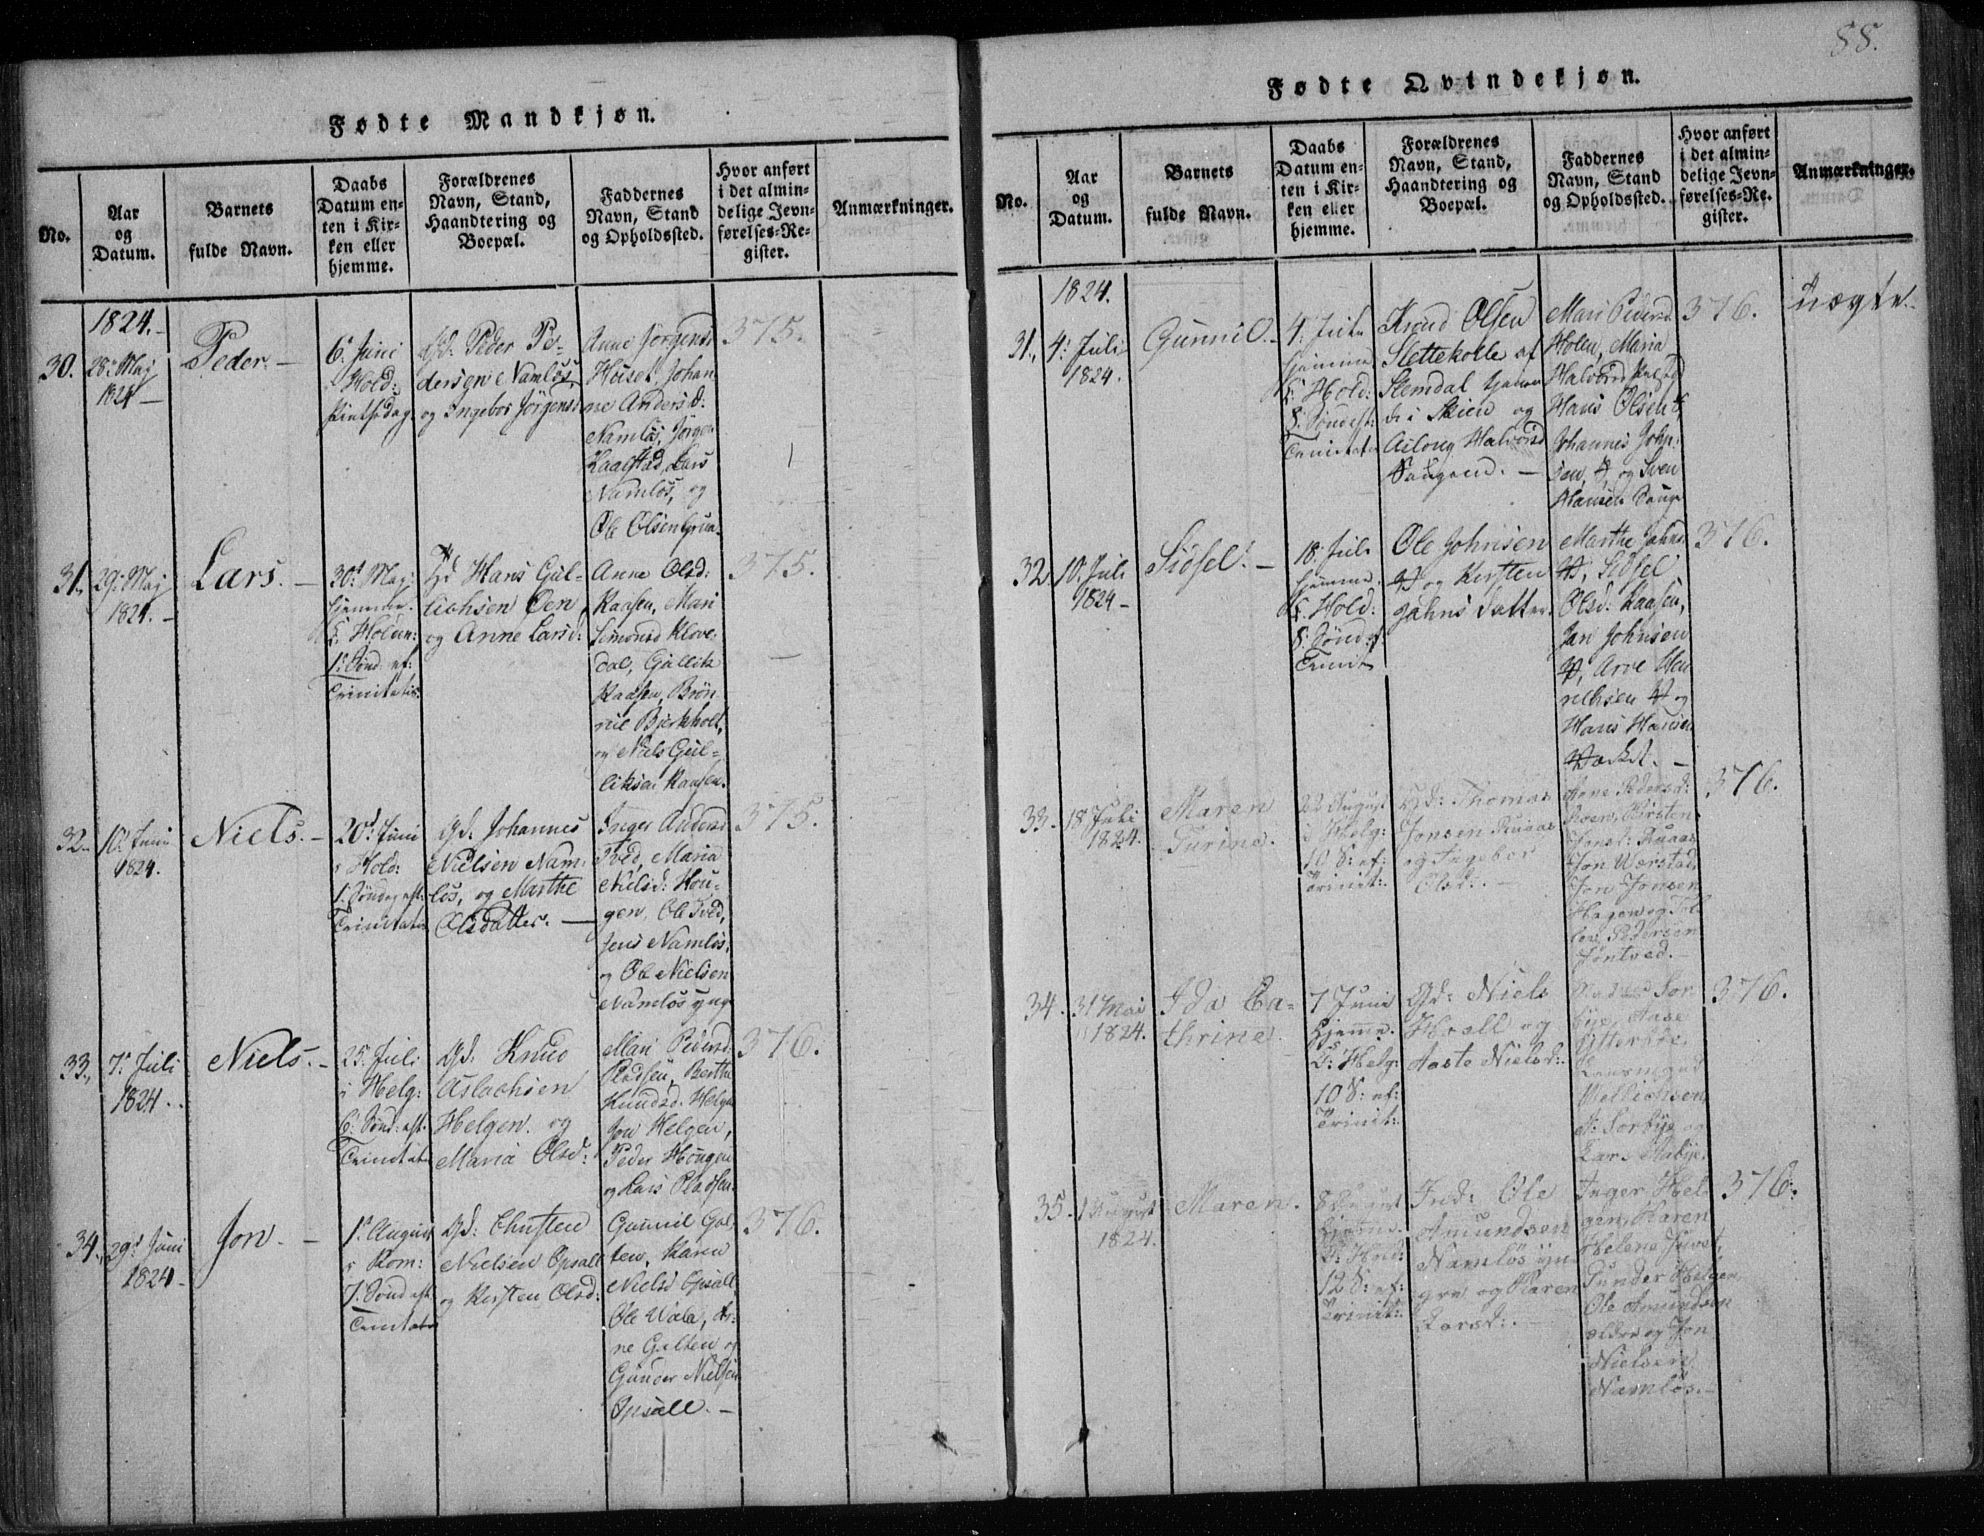 88.
Fødte Mandkjøn.
No.
Aar
og
Datum.
Barnets
fulde Navn.
Daabs
Datum en-
ten i Kir-
ken eller
hjemme.
Forældrenes
Navn, Stand,
Haandtering og
Boepæl.
Faddernes
Navn, Stand
og Opholdssted.
Hvor anført
i det almin-
delige Jevn-
førelses-Re-
gister.
Anmærkninger.
1824.
30.
28: Maj
1824
Peder.
6: Juni
Hold:
Pintsedag.
Gd: Peder Pe-
dersen Namløs
og Ingebor Jörgens
Anne Jörgens
Höiset, Johan-
ne Andersd:
Namløs, Jörgen
Kaastad, Lars
Namløs, og
Ole Olsen
375.
31.
29: Maj
1824.
Lars.
30: Maj
hjemme.
Holden:
1: Sönd: ef:
Trinitatis.
Hans Gul-
lichsen Oen
og Anne Larsd:
Anne Olsd:
Kaasen, Mari
Simonsd Klove-
dal, Gullik
Kaasen, Brön-
nil Bjerkholt,
og Niels Gul-
liksen Kaasen.
375.
32.
10: Juni
1824.
Niels.
20: Juni
Hold:
1: Söndag eft:
Trinitatis
Gd: Johannes
Nielsen Nam-
løs, og Marthe
Olsdatter.
Inger Andersd
Tved, Maria
Nielsd: Hou-
gen, Ole Tved,
Jens Namløs,
og Ole Nielsen
Namløs yng
375.
33.
7: Juli
1824.
Niels.
25: Juli
i Helg:
6: Sönd: eft.
Trinitat
Gd: Knud
Aslachsen
Helgen og
Maria Olsd:
Mari Pedersd:
Pladsen, Berthe
Knudsd. Helgen
Jon Helgen,
Peder Hougen
og Lars Pladsen.
376.
34.
29: Juni
1824
Jon.
1: August
i Rom:
7: Sönd eft
Trinitatis
Gd: Christen
Nielsen Opsall
og Kirsten Olsd:
Gunnil Gal-
ten, Karen
Nielsd Opsall
Ole Vala, Ar-
ne Galten og
Gunder Nielsen
Opsall.
376.
Fødte Qvindekjøn.
No.
Aar
og
Datum.
Barnets
fulde Navn.
Daabs
Datum en-
ten i Kir-
ken eller
hjemme.
Forældrenes
Navn, Stand,
Haandtering og
Boepæl.
Faddernes
Navn, Stand
og Opholdssted.
Hvor anført
i det almin-
delige Jevn-
førelses-Re-
gister.
Anmærkninger.
1824.
31.
4: Juli
1824.
Gunnil.
4: Juli
hjemme
Hold:
8: Sönd eft:
Trinitatis
Knud Olsen
Slettekolle af
Slemdal
i Skien og
Asloug Halvorsd
Mari Pedersd
Holen, Maria
Halvorsd
Hans Olsen
Johannes John-
sen, og Sven
Hansen
376.
uægte.
32.
10: Juli
1824
Sidsel.
18: Juli
hjemme.
Hold:
8: Sönd ef
Trinit
Ole Johnsen
og Kirsten
Jahns datter
Marthe Jahns
Sidsel
Olsd: Kaasen,
Jan Johnsen
Arve Hen-
richsen og
Hans Hansen
376.
33.
18 Juli
1824.
Maren
Turine.
22 August
i Helg:
10 S: ef:
Trinit:
Gd: Thomas
Jonsen Ruaas
og Ingebor
Olsd:
Anne Pedersd:
Kirsten
Jonsd: Ruaas
Jon Værstad,
Jon Jonsen
Hegen og
Pedersen
Töntved.
376.
34.
31 Mai
1824.
Ida Ca-
thrine.
7 Juni
hjemme.
Helg:
10 S: ef:
Trinit:
Gd: Niels
Hvall og
Aaste Nielsd:
Sor-
bye, Aase
Wettichsen
Sorbye og
Lars
376.
35.
1 August
1824.
Maren.
8 August
hjemme.
Hold:
12 S: ef:
Trinit:
Ind: Ole
Amundsen
Namløs yn-
gre og Karen
Larsd:
Inger Hel-
gen, Karen
Helene
Gunder Helgen,
Ole Amundsen
ældre og Jon
Nielsen
Namløs.
376.